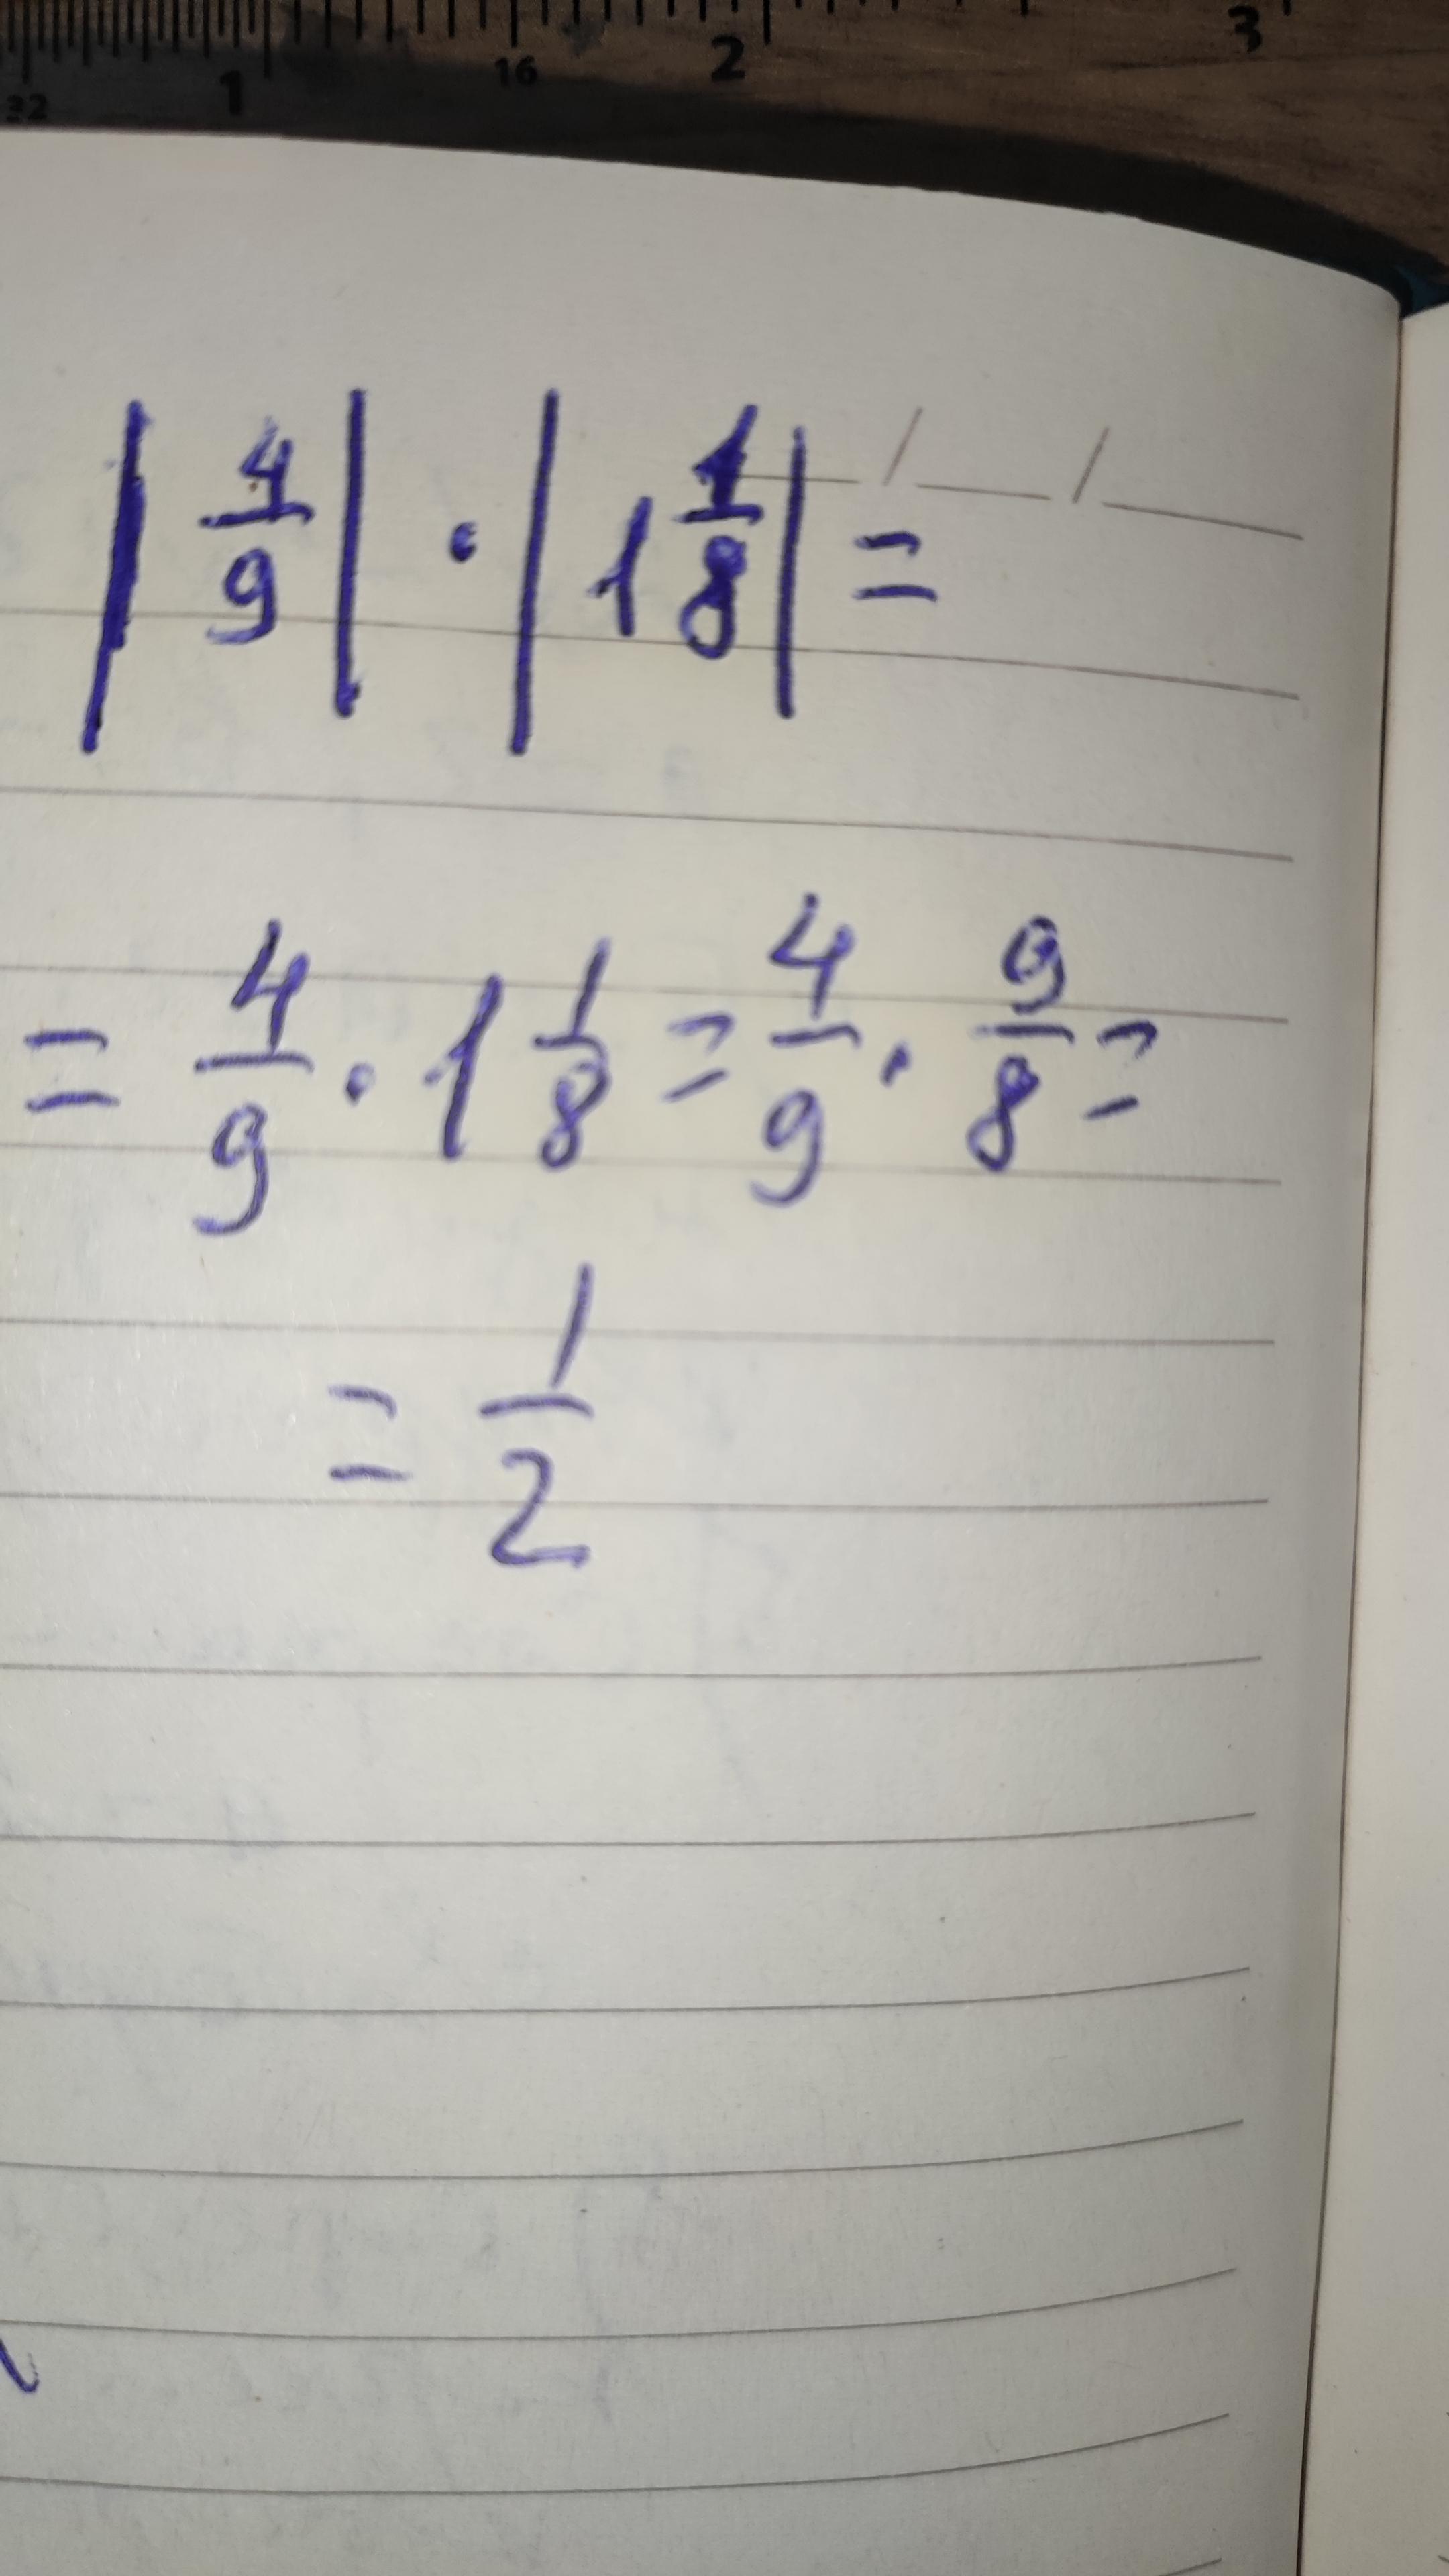 32 1 16 2 3
/ /
|4/9| · |1 1/8| =
= 4/9 · 1 1/8 = 4/9 · 9/8 =
= 1/2